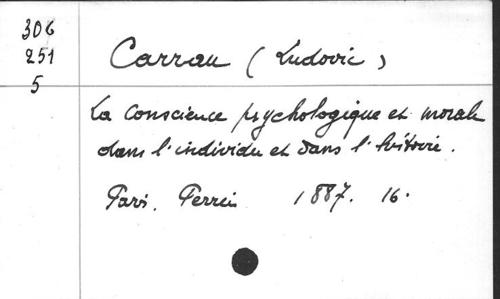 306
251
5
Carrau (Ludovic)
La Conscience psychologique et morale
dans l'individu et dans l'histoire.
Paris. Perrin 1887. 16.